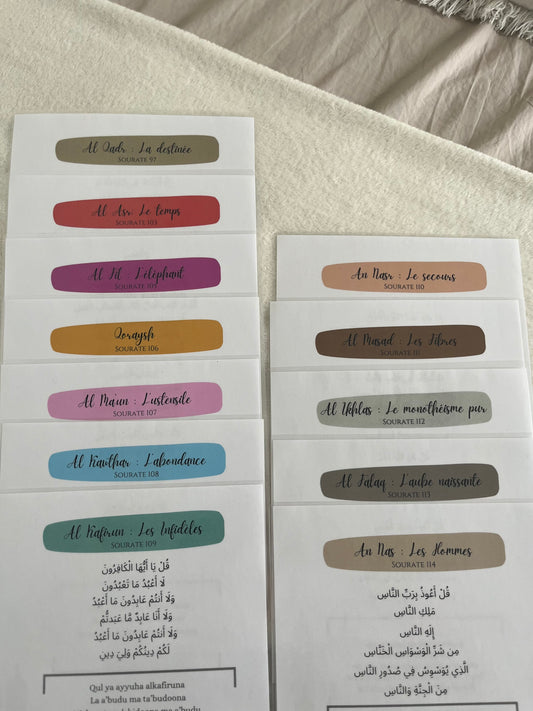 Al Qadr : La destinée
SOURATE 97
Al Asr: Le temps
SOURATE 103
Al Fil : L'éléphant
SOURATE 105
Qoraysh
SOURATE 106
Al Ma'un : L'ustensile
SOURATE 107
Al Kawthar : L'abondance
SOURATE 108
Al Kafirun : Les Infidèles
SOURATE 109
قُلْ يَا أَيُّهَا الْكَافِرُونَ
لَا أَعْبُدُ مَا تَعْبُدُونَ
وَلَا أَنتُمْ عَابِدُونَ مَا أَعْبُدُ
وَلَا أَنَا عَابِدٌ مَّا عَبَدتُّمْ
وَلَا أَنتُمْ عَابِدُونَ مَا أَعْبُدُ
لَكُمْ دِينُكُمْ وَلِيَ دِينِ
Qul ya ayyuha alkafiruna
La a'budu ma ta'budoona
An Nasr : Le secours
SOURATE 110
Al Masad : Les Fibres
SOURATE 111
Al Ikhlas : Le monothéisme pur
SOURATE 112
Al Falaq : L'aube naissante
SOURATE 113
An Nas : Les Hommes
SOURATE 114
قُلْ أَعُوذُ بِرَبِّ النَّاسِ
مَلِكِ النَّاسِ
إِلَهِ النَّاسِ
مِن شَرِّ الْوَسْوَاسِ الْخَنَّاسِ
الَّذِي يُوَسْوِسُ فِي صُدُورِ النَّاسِ
مِنَ الْجِنَّةِ وَالنَّاسِ